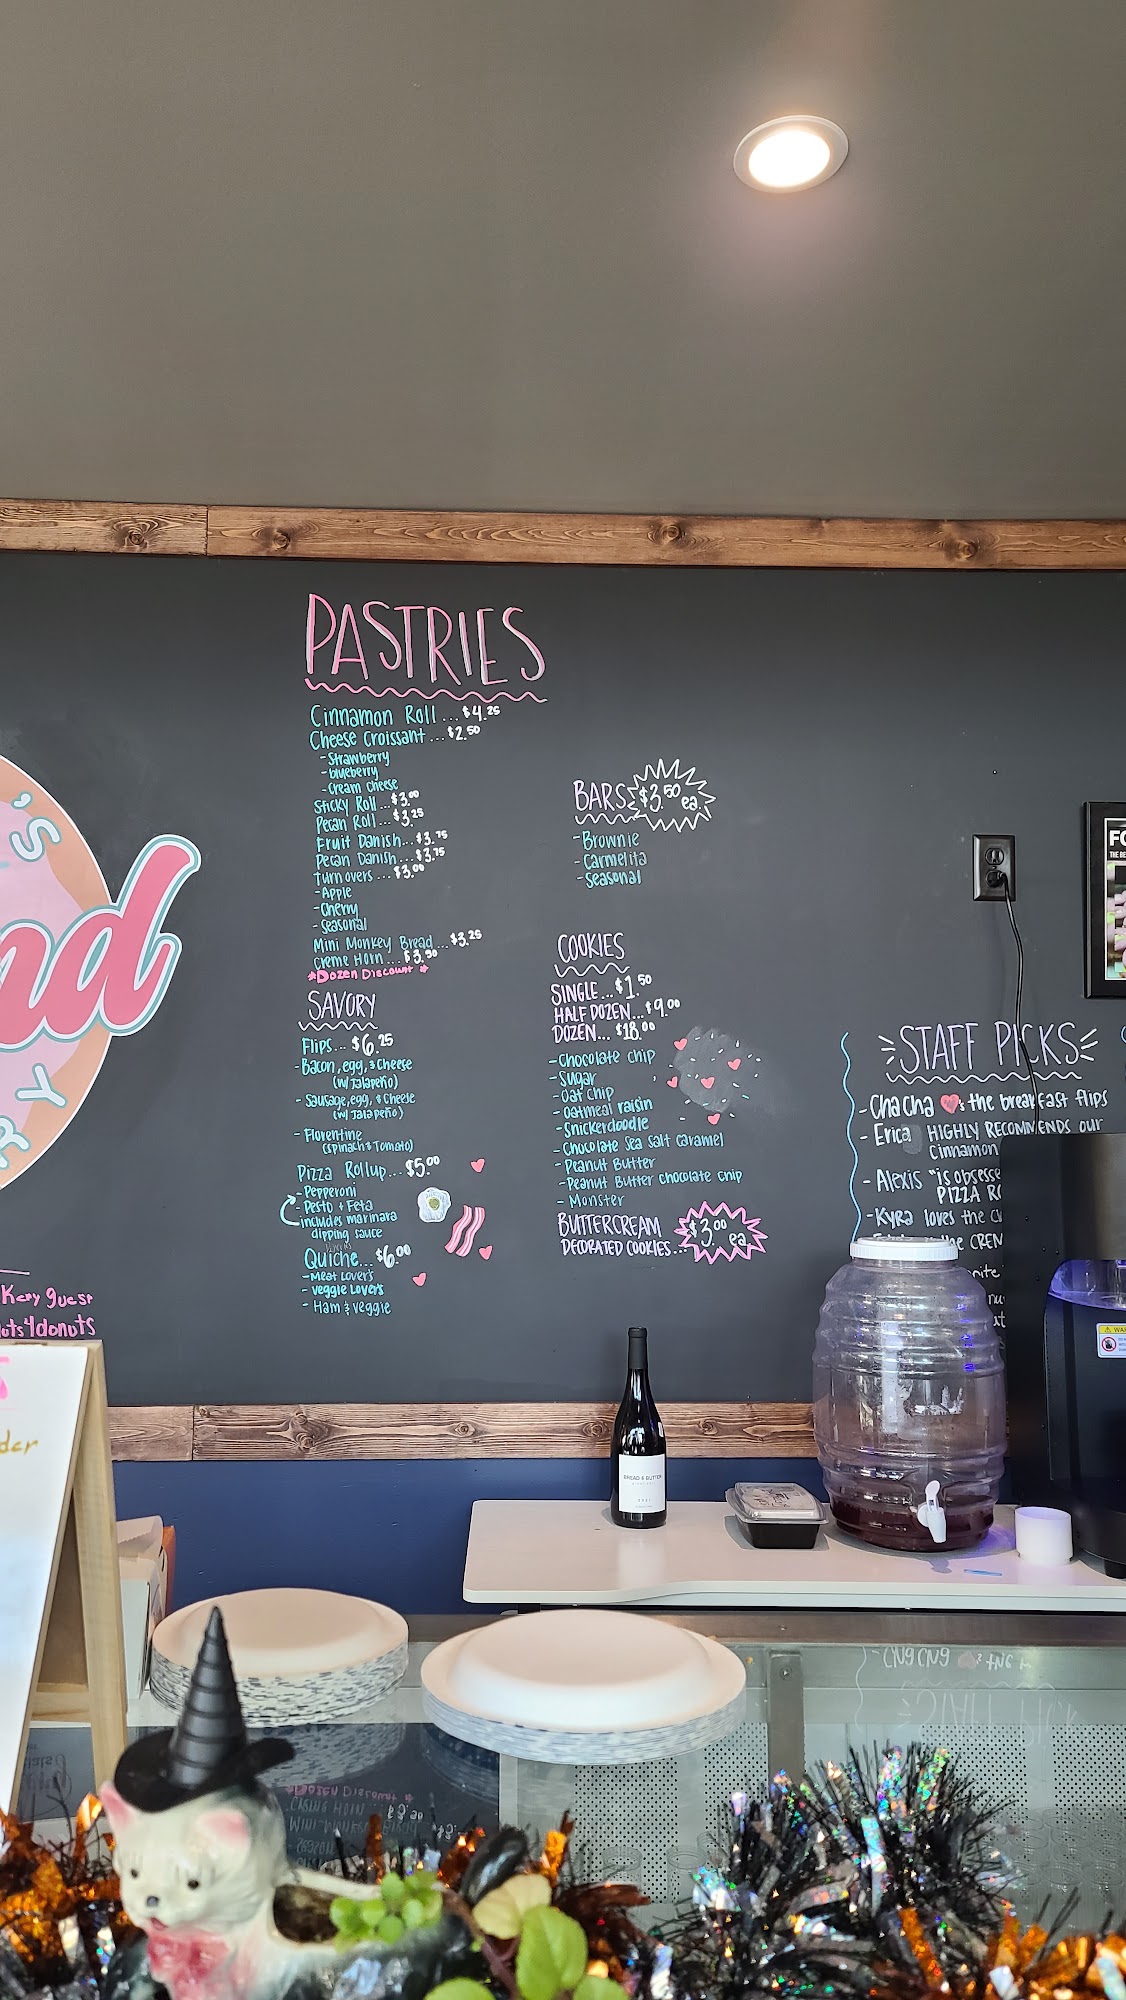 PASTRIES
Cinnamon Roll ... $4.25
Cheese Croissant ... $2.50
- Strawberry
- blueberry
- Cream Cheese
Sticky Roll ... $3.00
Pecan Roll ... $3.25
Fruit Danish... $3.75
Pecan Danish... $3.75
Turnovers ... $3.00
- Apple
- Cherry
- Seasonal
Mini Monkey Bread ... $3.25
Creme Horn ... $3.50
*Dozen Discount*
SAVORY
Flips... $6.25
- Bacon, egg, & Cheese
(w/ Jalapeño)
- Sausage, egg, & Cheese
(w/ Jalapeño)
- Florentine
(Spinach & Tomato)
Pizza Rollup... $5.00
- Pepperoni
- Pesto + Feta
includes marinara
dipping sauce
Quiche... $6.00
- Meat Lover's
- Veggie Lover's
- Ham & Veggie
BARS $3.50 ea.
- Brownie
- Carmelita
- Seasonal
COOKIES
SINGLE... $1.50
HALF DOZEN... $9.00
DOZEN... $18.00
- Chocolate chip
- Sugar
- Oat Chip
- Oatmeal raisin
- Snickerdoodle
- Chocolate Sea Salt Caramel
- Peanut Butter
- Peanut Butter Chocolate Chip
- Monster
BUTTERCREAM
DECORATED COOKIES... $3.00 ea
STAFF PICKS
- ChaCha ♥'s the breakfast flips
- Erica HIGHLY RECOMMENDS our
Cinnamon
- Alexis "is obsesse
PIZZA RO
- Kyra loves the
the CREM
nd
kery guest
uts4donuts
der
BREAD & BUTTER
2021
FO
THE BE
WA